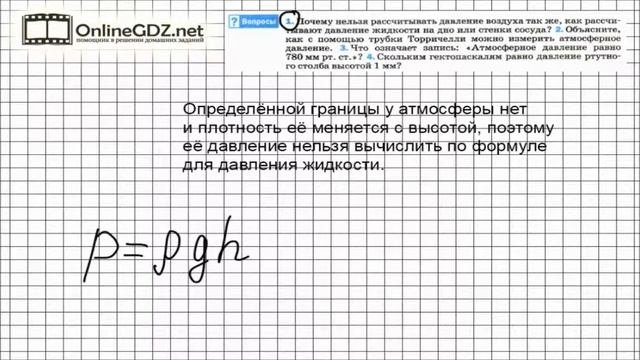 OnlineGDZ.net
помощник в решении домашних заданий
? Вопросы 1. Почему нельзя рассчитывать давление воздуха так же, как рассчи-
тывают давление жидкости на дно или стенки сосуда? 2. Объясните,
как с помощью трубки Торричелли можно измерить атмосферное
давление. 3. Что означает запись: «Атмосферное давление равно
780 мм рт. ст.»? 4. Скольким гектопаскалям равно давление ртутно-
го столба высотой 1 мм?
Определённой границы у атмосферы нет
и плотность её меняется с высотой, поэтому
её давление нельзя вычислить по формуле
для давления жидкости.
p=ρgh